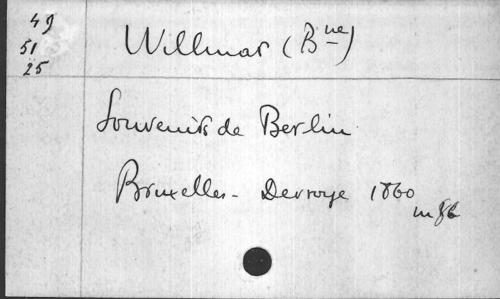 49
51
25
Willmar (Bne)
Souvenirs de Berlin
Bruxelles - Devroye 1860
in